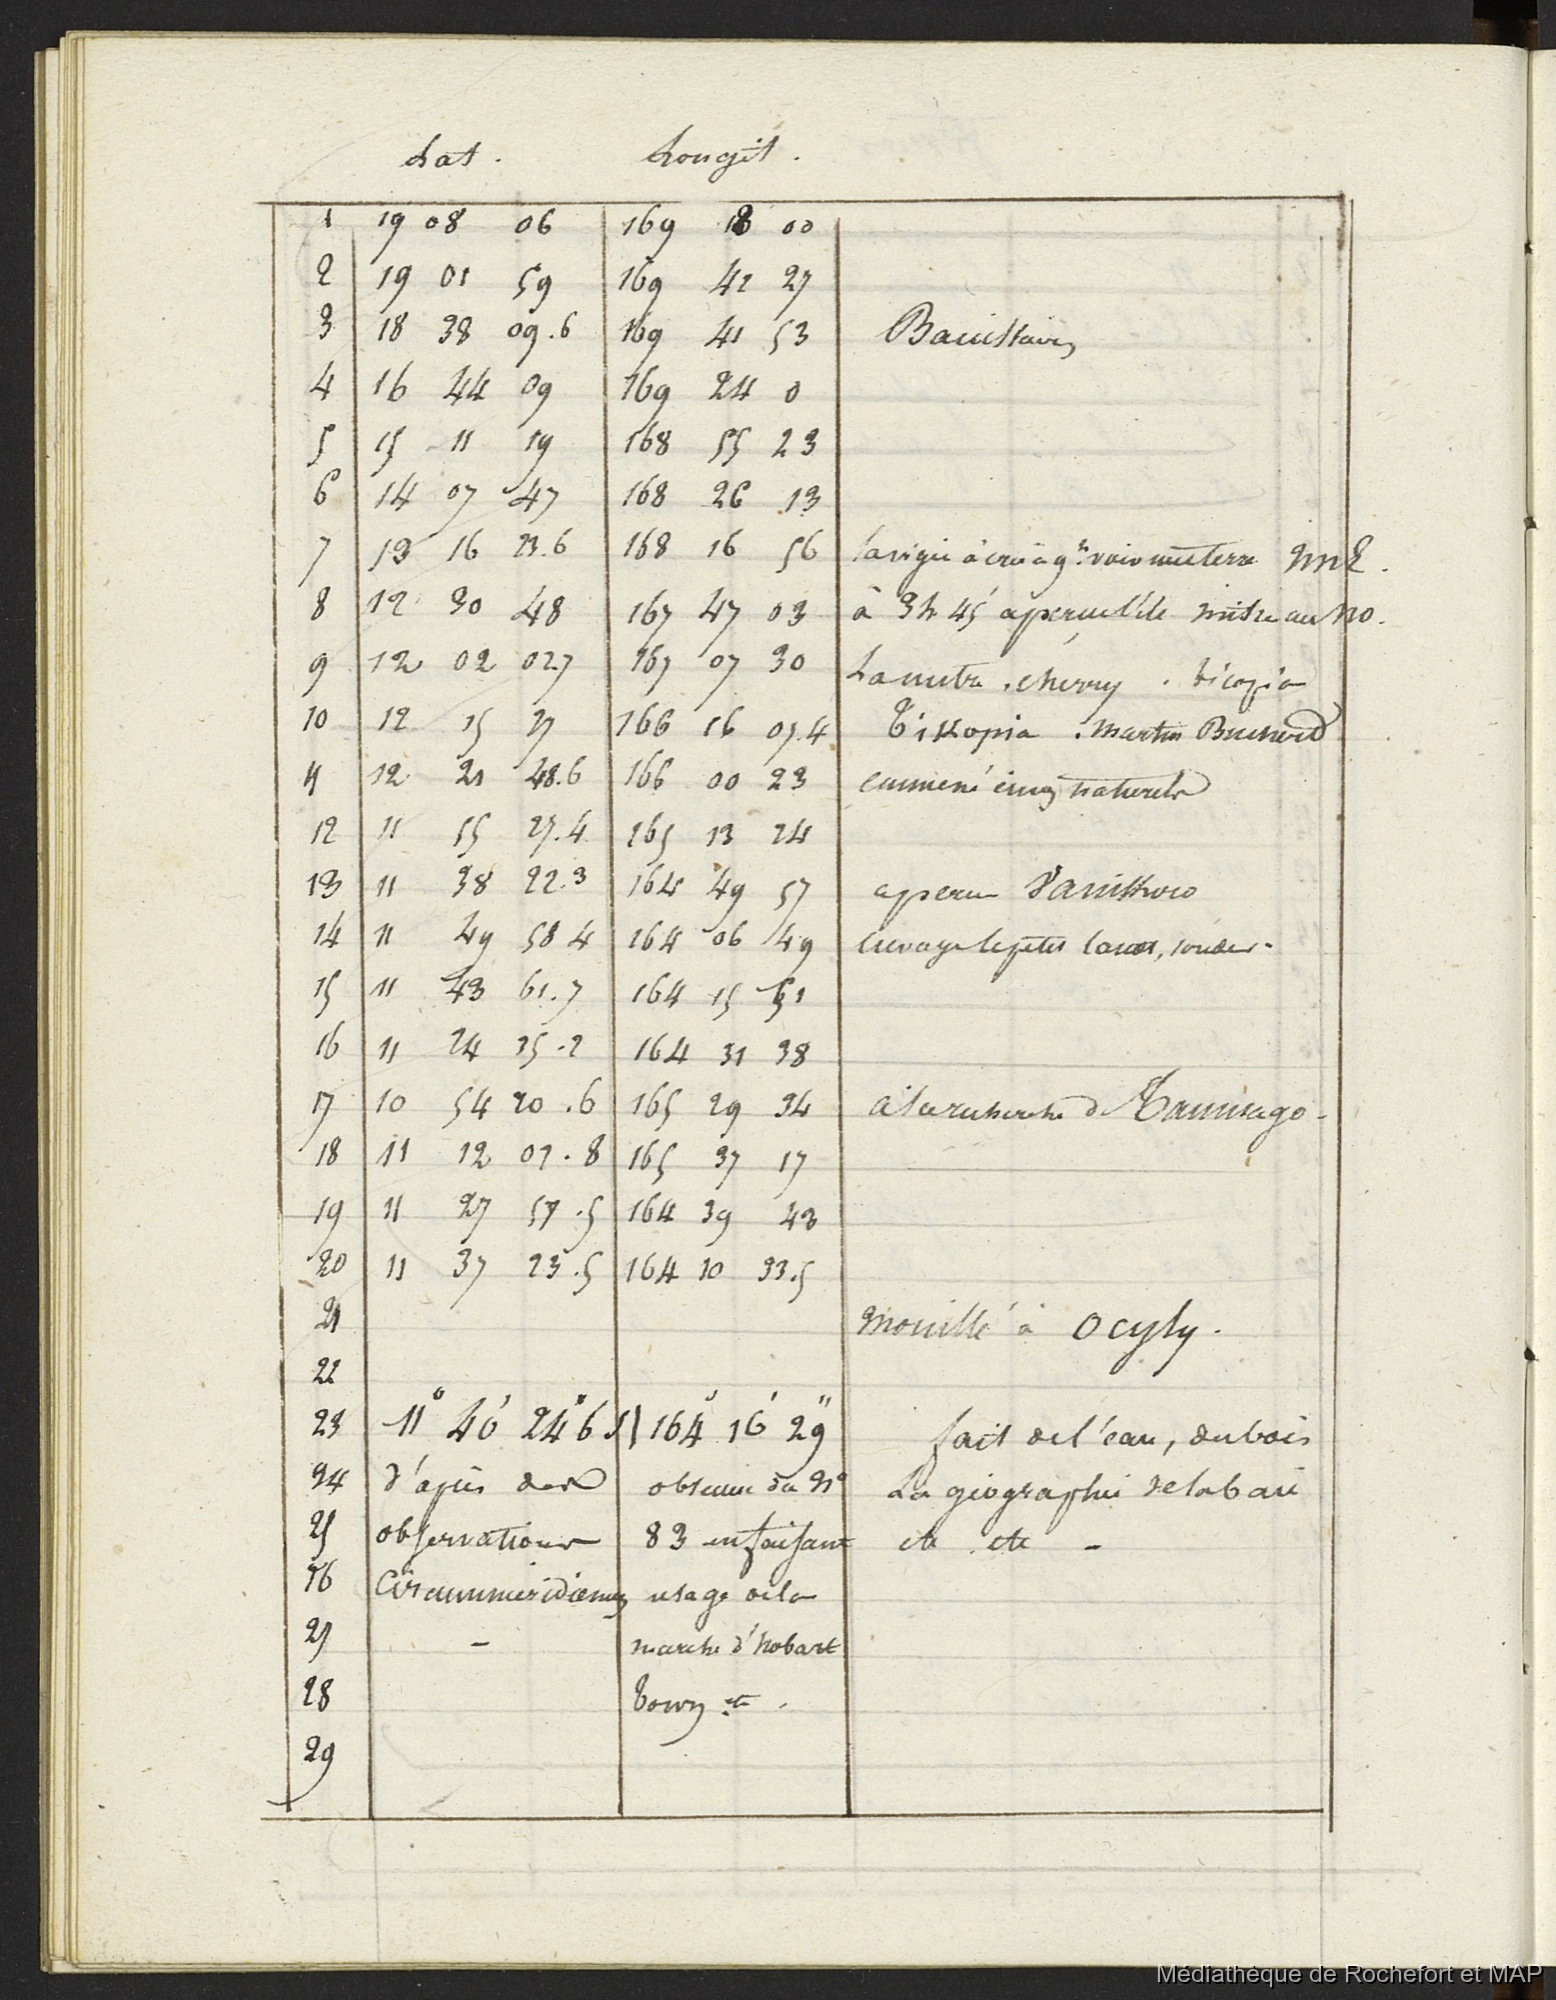 Lat. Longit.
1 19 08 06 169 18 00
2 19 01 59 169 42 27
3 18 38 09.6 169 41 53
4 16 44 09 169 24 0
5 15 11 19 168 55 23
6 14 07 47 168 26 13
7 13 16 23.6 168 16 56 la vigie a cru à voir une terre NNE.
8 12 30 48 167 47 03 à 3h 45' aperçu l'île mitre au NO.
9 12 02 02.7 167 07 30 La mitre . cherry . ticopia
10 12 15 27 166 16 07.4 Tikopia . Martin Bushard
11 12 21 48.6 166 00 23 emmené cinq naturels
12 11 55 27.4 165 13 24
13 11 38 22.3 164 49 57 aperçu Vanikoro
14 11 49 58 4 164 06 49 envoyé le petit canot, sonder.
15 11 43 61.7 164 15 51
16 11 24 35.2 164 31 38
17 10 54 20.6 165 29 34 à la recherche d Taumago.
18 11 12 07.8 165 37 17
19 11 27 57.5 164 39 43
20 11 37 23.5 164 10 33.5
21 Mouillé à Ocyly.
22
23 11° 40' 24"6 S 164° 16' 29" fait de l'eau, du bois
24 d'après des observ du N° La géographie de la baie
25 observations 83 en faisant etc etc -
26 Circumméridiennes usage de la
27 - marche d'hobart
28 Town etc.
29
Médiathèque de Rochefort et MAP